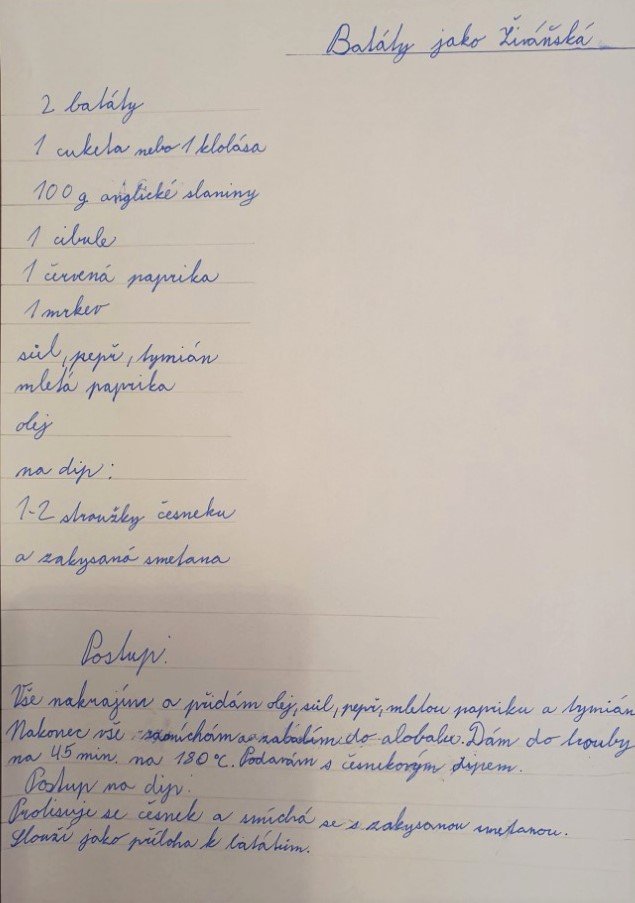 Batáty jako Živáňská
2 batáty
1 cuketa nebo 1 klolása
100 g anglické slaniny
1 cibule
1 červená paprika
1 mrkev
sůl, pepř, tymián
mletá paprika
olej
na dip:
1-2 stroužky česneku
a zakysaná smetana
Postup:
Vše nakrájím a přidám olej, sůl, pepř, mletou papriku a tymián
Nakonec vše smíchám a zabalím do alobalu. Dám do trouby
na 45 min. na 180 °C. Podávám s česnekovým dipem.
Postup na dip:
Prolisuje se česnek a smíchá se s zakysanou smetanou.
Slouží jako příloha k batátům.